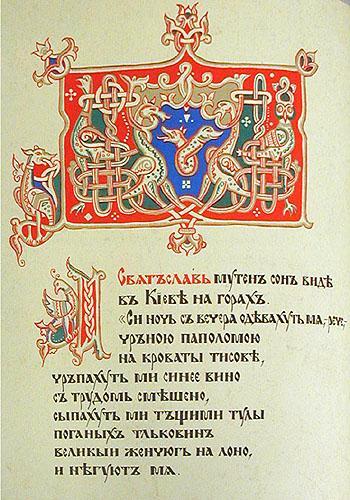 И Сватъславь мутен сон виде
въ Кіевѣ на горах.
«Си ночь съ вечера одѣвахуть ма,- рече-
чръною паполомою
на кроваты тисовѣ,
чръпахуть ми синее вино
съ трудомь смѣшено,
сыпахуть ми тъщими тулы
поганых тльковин
великый женчюгь на лоно,
и нѣгуют ма.